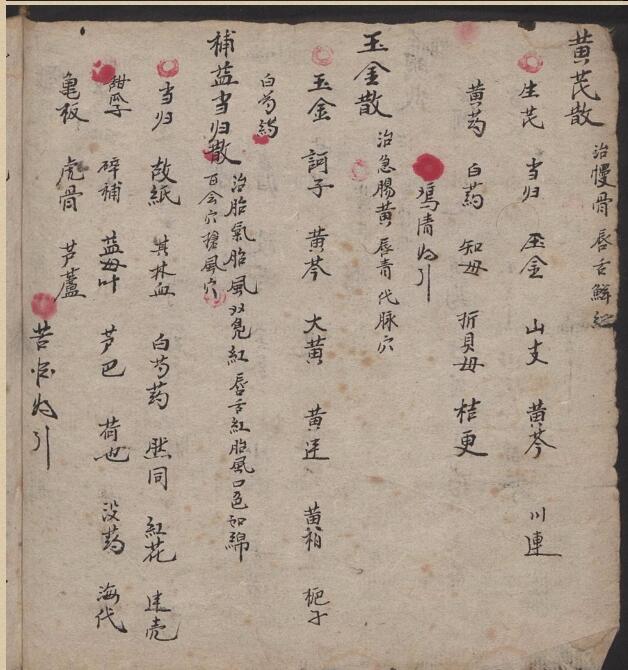 黄芪散 治慢骨唇舌鮮紅
生芪 当归 玉金 山支 黄芩 川連
黄芍 白药 知母 折貝母 桔更
鸡清为引
玉金散 治急腸黄唇青代脉穴
玉金 訶子 黄芩 大黄 黄连 黄柏 栀子
白芍药
補益当归散 治胎氣胎風双凫紅唇舌紅胎風口色如綿
百会穴搶風穴
当归 故紙 其林血 白芍药 然同 紅花 连壳
甜瓜子 碎補 益母叶 芦巴 荷也 没药 海代
亀板 虎骨 芦薈
苦酒为引